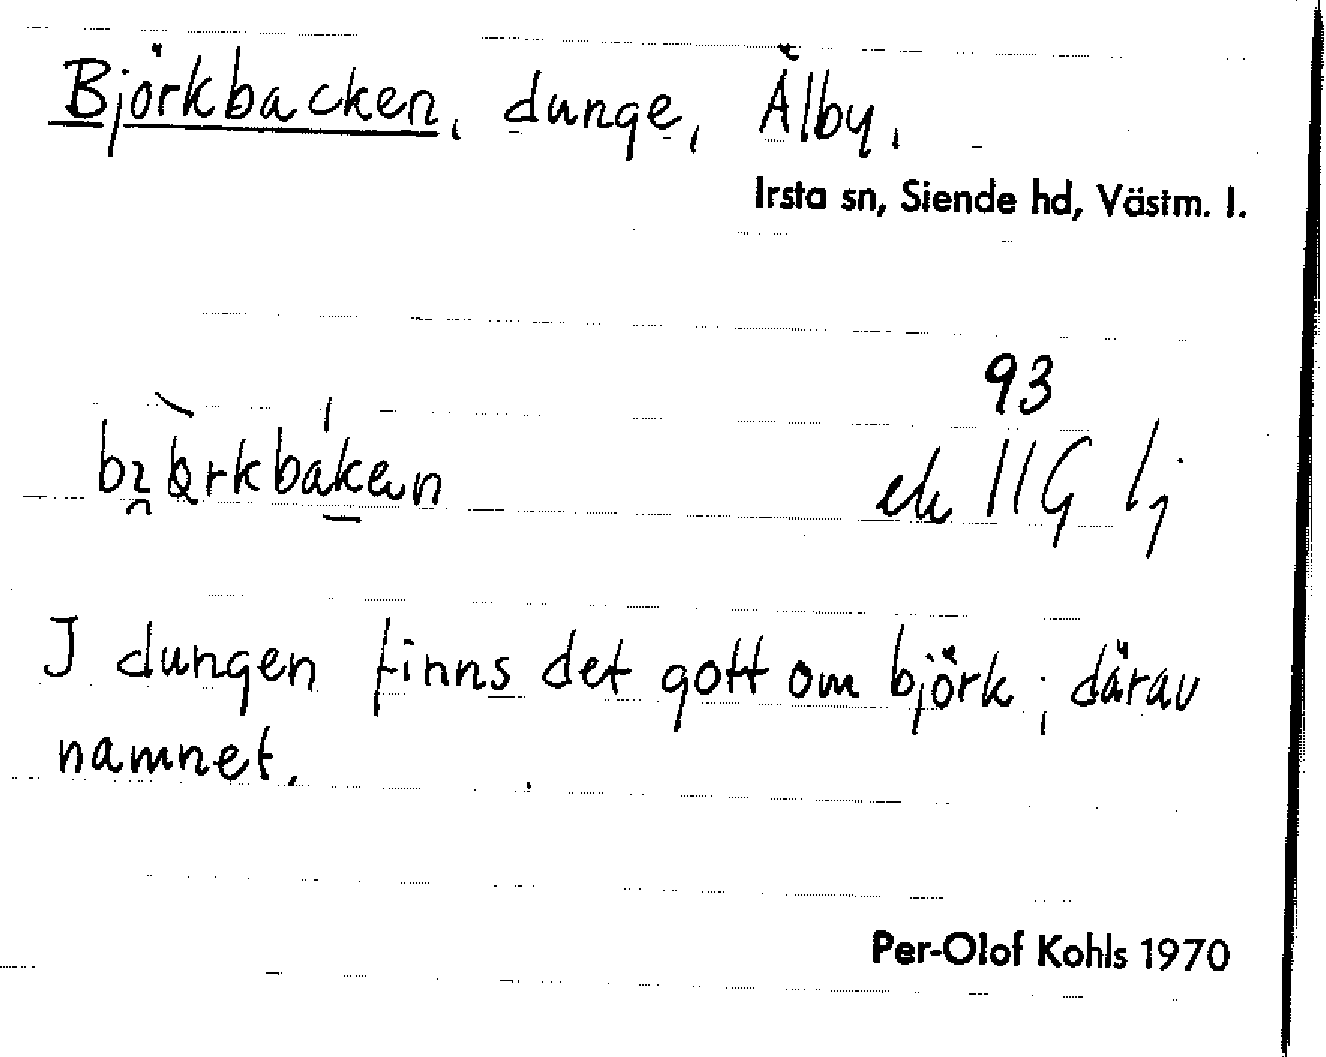 Björkbacken, dunge, Älby,
Irsta sn, Siende hd, Västm. l.
93
ek 11G lj
I dungen finns det gott om björk; därav
namnet.
Per-Olof Kohls 1970